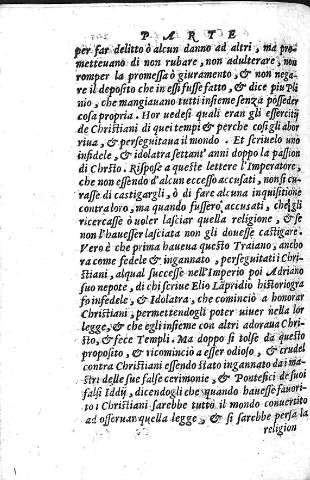 PARTE
per far delitto ò alcun danno ad altri, ma pro-
metteuano di non rubare, non adulterare, non
romper la promessa ò giuramento, & non nega-
re il deposito che in essi fusse fatto, & dice piu Pli
nio, che mangiauano tutti insieme senza posseder
cosa propria. Hor uedesi quali eran gli essercitij
de Christiani di quei tempi & perche cosi gli abor
riua, & perseguitaua il mondo. Et scriuelo uno
infidele, & idolatra settant' anni doppo la passion
di Christo. Rispose a queste lettere l'Imperatore,
che non essendo d'alcun eccesso accusati, non si cu-
rasse di castigargli, ò di fare alcuna inquisitione
contra loro, ma quando fussero accusati, che gli
ricercasse ò uoler lasciar quella religione, & se
non l'hauesser lasciata non gli douesse castigare.
Vero è che prima haueua questo Traiano, ancho
ra come fedele & ingannato, perseguitati i Chri-
stiani, alqual successe nell'Imperio poi Adriano
suo nepote, di chi scriue Elio Lapridio historiogra
fo infedele, & Idolatra, che cominciò a honorar
Christiani, permettendogli poter uiuer nella lor
legge, & che egli insieme con altri adoraua Chri-
sto, & fece Templi. Ma doppo si tolse da questo
proposito, & ricominciò a esser odioso, & crudel
contra Christiani essendo stato ingannato da i ma-
stri delle sue false cerimonie, & Pontefici de suoi
falsi Iddij, dicendogli che quando hauesse fauori-
to i Christiani sarebbe tutto il mondo conuertito
ad osseruar quella legge, & si sarebbe persa la
religion